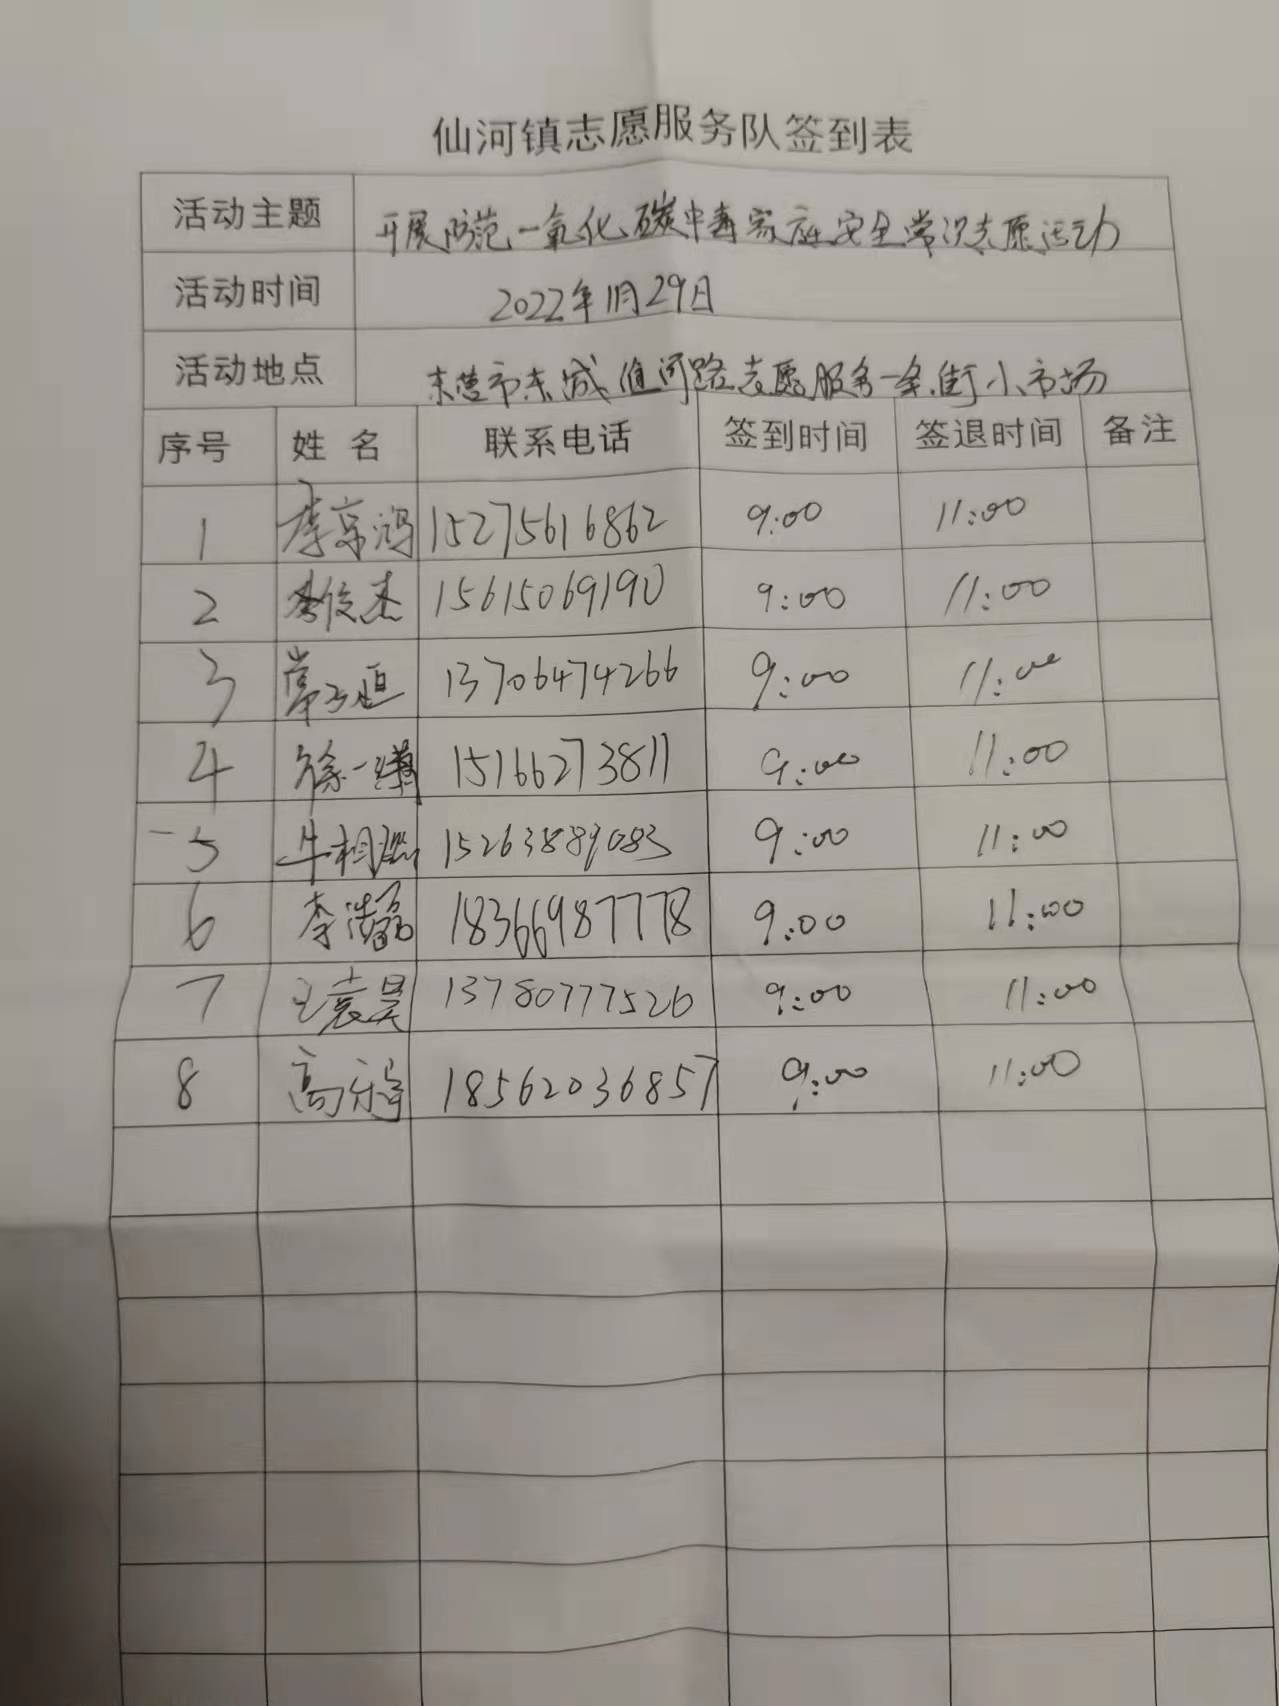 仙河镇志愿服务队签到表
活动主题 开展防范一氧化碳中毒家庭安全常识志愿运动
活动时间 2022年11月29日
活动地点 东营市东城淮河路志愿服务一条街小市场
序号 姓名 联系电话 签到时间 签退时间 备注
1 李京鸿 15275616862 9:00 11:00
2 李俊杰 15615069190 9:00 11:00
3 常子恒 13706474266 9:00 11:00
4 徐一 15166273811 9:00 11:00
5 牛相 15263889083 9:00 11:00
6 李浩磊 18366987778 9:00 11:00
7 王袁昊 13780777526 9:00 11:00
8 高 18562036857 9:00 11:00